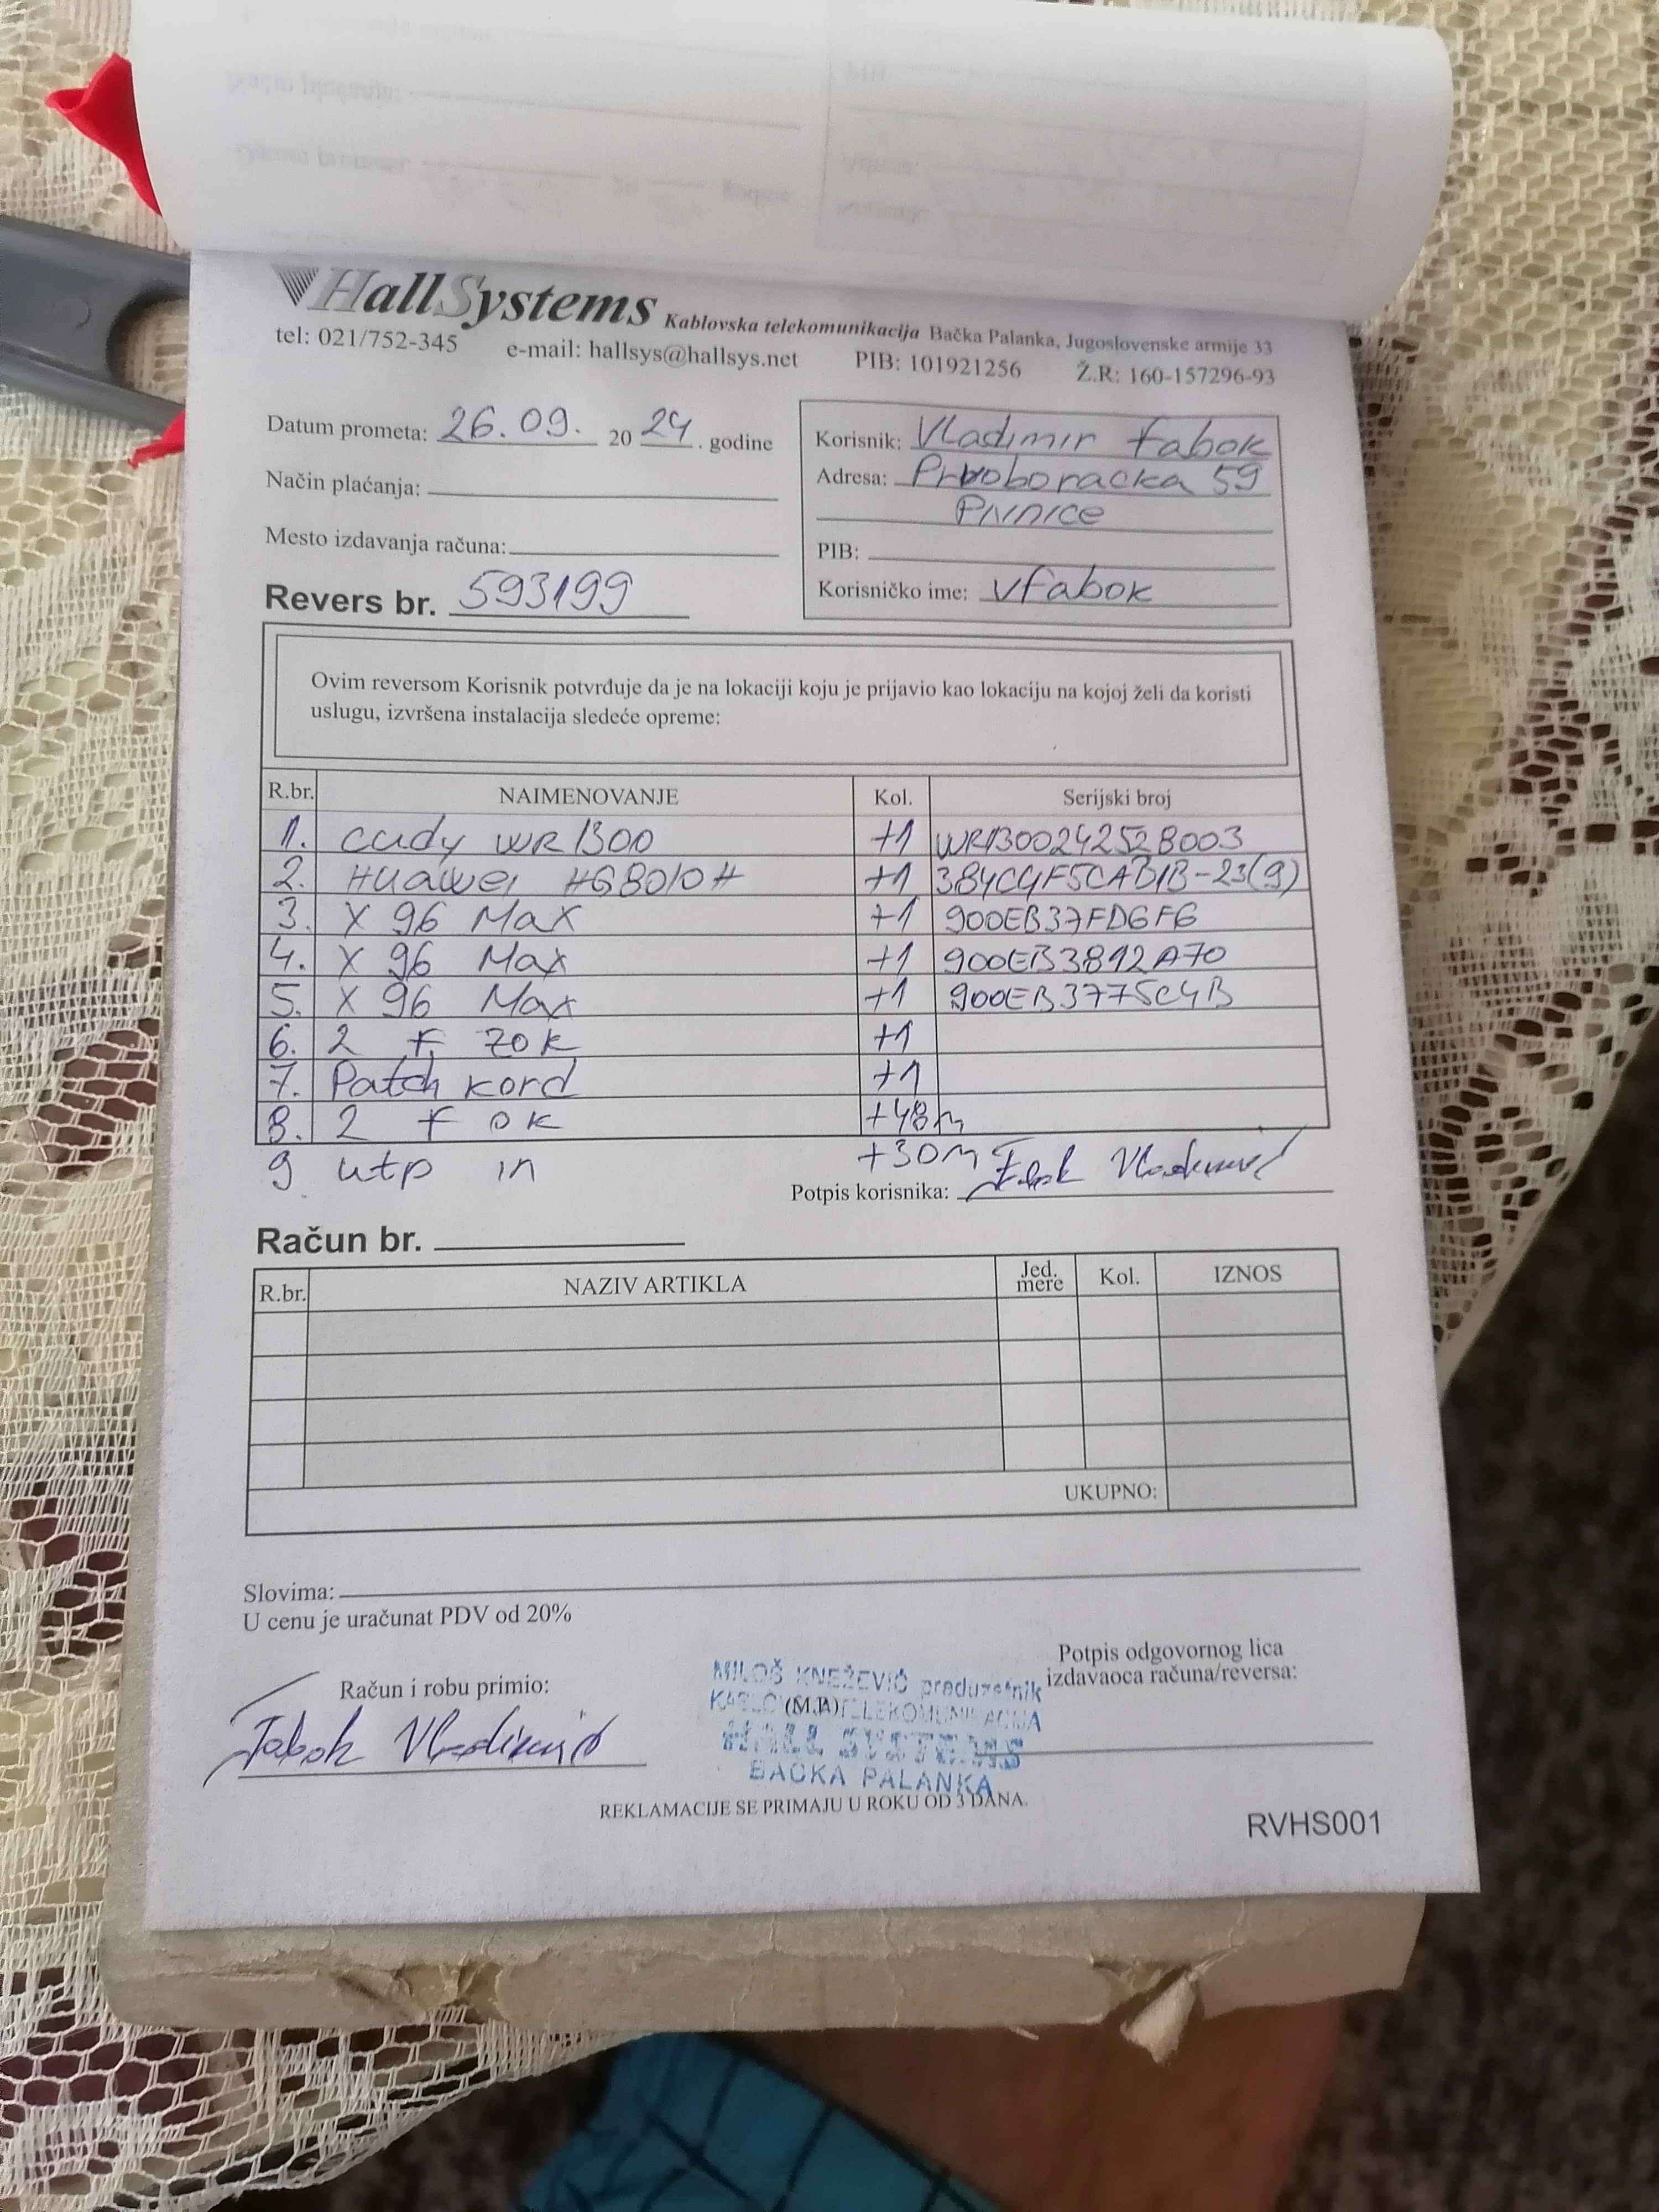 HallSystems Kablovska telekomunikacija Bačka Palanka, Jugoslovenske armije 33
tel: 021/752-345 e-mail: hallsys@hallsys.net PIB: 101921256 Ž.R: 160-157296-93
Datum prometa: 26.09. 20 24. godine
Način plaćanja:
Mesto izdavanja računa:
Revers br. 593199
Korisnik: Vladimir Fabok
Adresa: Prvoboracka 59
Pivnice
PIB:
Korisničko ime: vfabok
Ovim reversom Korisnik potvrđuje da je na lokaciji koju je prijavio kao lokaciju na kojoj želi da koristi
uslugu, izvršena instalacija sledeće opreme:
R.br. NAIMENOVANJE Kol. Serijski broj
1. cudy WR1300 +1 WR1300242528003
2. Huawei HG8010H +1 384C4F5CAB1B-23(9)
3. X 96 Max +1 900EB37FD6F6
4. X 96 Max +1 900EB3812A70
5. X 96 Max +1 900EB3775C4B
6. 2 F ZOK +1
7. Patch kord +1
8. 2 F OK +48m
9 utp in +30m
Potpis korisnika: Fabok Vladimir
Račun br.
R.br. NAZIV ARTIKLA Jed. mere Kol. IZNOS
UKUPNO:
Slovima:
U cenu je uračunat PDV od 20%
Račun i robu primio:
Fabok Vladimir
(M.P.)
MILOŠ KNEŽEVIĆ preduzetnik
KABLOVSKA TELEKOMUNIKACIJA
HALL SYSTEMS
BAČKA PALANKA
Potpis odgovornog lica
izdavaoca računa/reversa:
REKLAMACIJE SE PRIMAJU U ROKU OD 3 DANA.
RVHS001